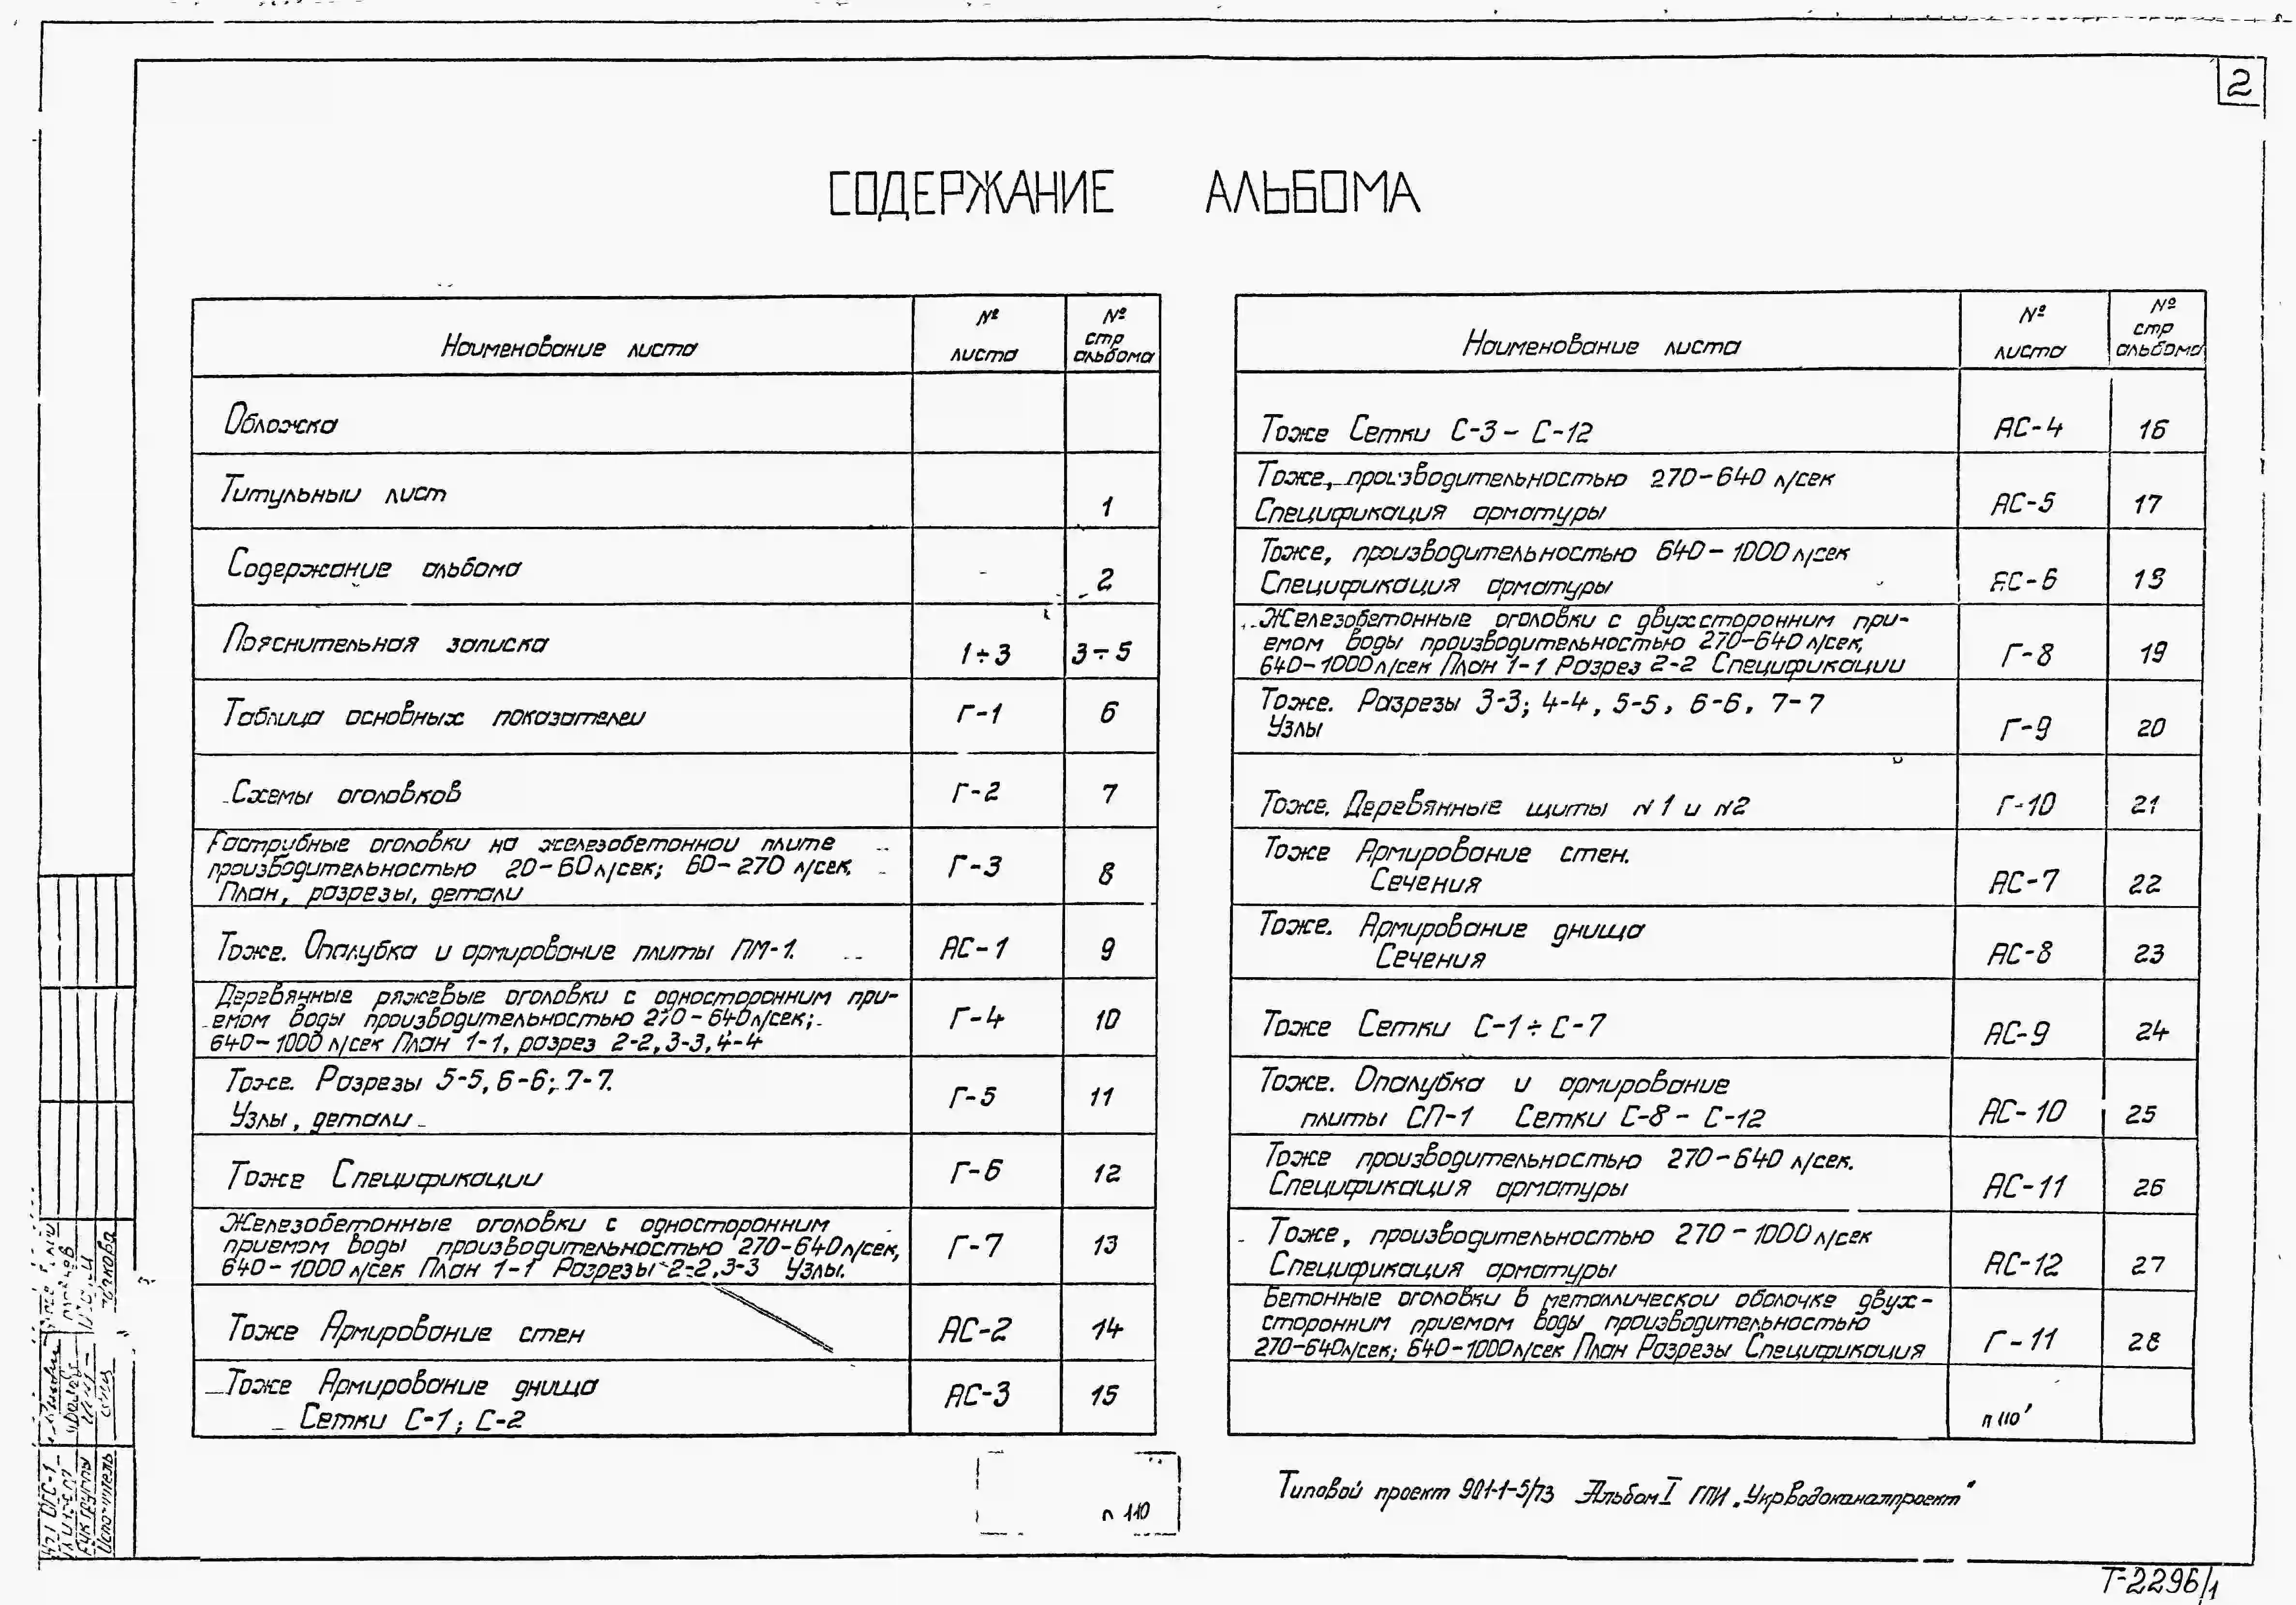 2
СОДЕРЖАНИЕ АЛЬБОМА
Наименование листа № листа № стр альбома
Обложка
Титульный лист 1
Содержание альбома - 2
Пояснительная записка 1÷3 3÷5
Таблица основных показателей Г-1 6
Схемы оголовков Г-2 7
Раструбные оголовки на железобетонной плите
производительностью 20-60 л/сек; 60-270 л/сек, Г-3 8
План, разрезы, детали
Тоже. Опалубка и армирование плиты ПМ-1. АС-1 9
Деревянные ряжевые оголовки с односторонним при-
емом воды производительностью 270-640 л/сек; Г-4 10
640-1000 л/сек План 1-1, разрез 2-2, 3-3, 4-4
Тоже. Разрезы 5-5, 6-6; 7-7.
Узлы, детали Г-5 11
Тоже Спецификации Г-6 12
Железобетонные оголовки с односторонним
приемом воды производительностью 270-640 л/сек, Г-7 13
640-1000 л/сек План 1-1 Разрезы 2-2, 3-3 Узлы.
Тоже Армирование стен АС-2 14
Тоже Армирование днища АС-3 15
Сетки С-1; С-2
Наименование листа № листа № стр альбома
Тоже Сетки С-3 - С-12 АС-4 16
Тоже, производительностью 270-640 л/сек
Спецификация арматуры АС-5 17
Тоже, производительностью 640-1000 л/сек
Спецификация арматуры АС-6 18
Железобетонные оголовки с двухсторонним при-
емом воды производительностью 270-640 л/сек,
640-1000 л/сек План 1-1 Разрез 2-2 Спецификации Г-8 19
Тоже. Разрезы 3-3; 4-4, 5-5, 6-6, 7-7
Узлы Г-9 20
Тоже. Деревянные щиты N1 и N2 Г-10 21
Тоже Армирование стен.
Сечения АС-7 22
Тоже. Армирование днища
Сечения АС-8 23
Тоже Сетки С-1÷С-7 АС-9 24
Тоже. Опалубка и армирование
плиты СП-1 Сетки С-8 - С-12 АС-10 25
Тоже производительностью 270-640 л/сек.
Спецификация арматуры АС-11 26
Тоже, производительностью 270-1000 л/сек
Спецификация арматуры АС-12 27
Бетонные оголовки в металлической оболочке двух-
сторонним приемом воды производительностью
270-640 л/сек; 640-1000 л/сек План Разрезы Спецификация Г-11 28
п 110
п 110
Типовой проект 901-1-5/73 Альбом I ГПИ „Укрводоканалпроект"
Исполнитель
Т-2296/1